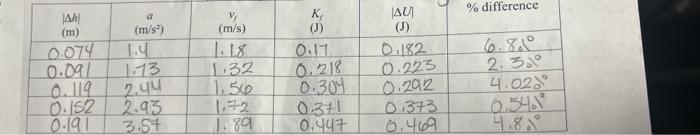 |Δh| (m) a (m/s²) v_f (m/s) K_f (J) |ΔU| (J) % difference
0.074 1.4 1.18 0.17 0.182 6.8%
0.091 1.73 1.32 0.218 0.223 2.3%
0.119 2.44 1.56 0.304 0.292 4.02%
0.152 2.93 1.72 0.371 0.373 0.54%
0.191 3.57 1.89 0.447 0.469 4.8%